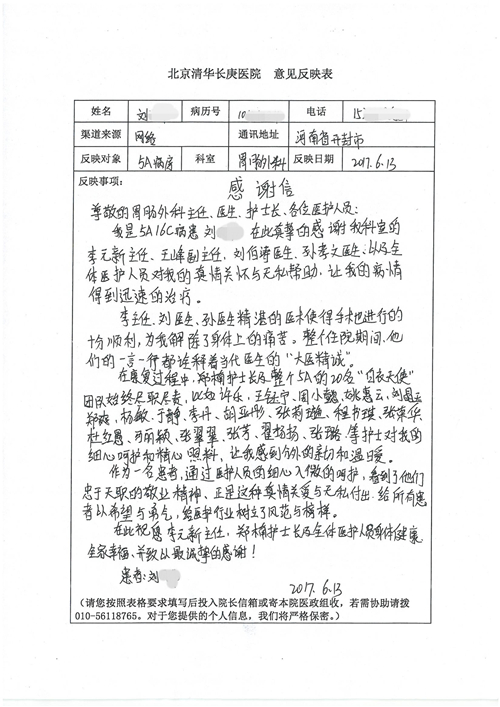 北京清华长庚医院 意见反映表
姓名 刘 病历号 10 电话 15
渠道来源 网络 通讯地址 河南省开封市
反映对象 5A病房 科室 胃肠外科 反映日期 2017.6.13
反映事项：
感谢信
尊敬的胃肠外科主任、医生、护士长、各位医护人员：
我是5A16C病患刘 在此真挚的感谢我科室的
李元新主任、王峰副主任、刘伯涛医生、孙孝文医生、以及全
体医护人员对我的真情关怀与无私帮助，让我的病情
得到迅速的治疗。
李主任、刘医生、孙医生精湛的医术使得手术进行的
十分顺利，为我解除了身体上的痛苦。整个住院期间，他
们的一言一行都诠释着当代医生的“大医精诚”。
在康复过程中，郑楠护士长及整个5A的20名“白衣天使”
团队始终尽职尽责，比如许乐，王钰宁、周小懿、姚惠云，刘
郑爽，杨敏，于静，李丹、胡亚彤、张莉 、程书琪、张荣华，
杜立恩、 丽颖、张翠翠、张芳、翟杨杨、张璐，等护士对我的
细心呵护和精心照料，让我感到分外的亲切和温暖。
作为一名患者，通过医护人员的细心入微的呵护，看到了他们
忠于天职的敬业精神、正是这种真情关爱与无私付出，给所有患
者以希望与勇气，给医护行业树立了风范与榜样。
在此祝愿李元新主任，郑楠护士长及全体医护人员身体健康
全家幸福，并致以最诚挚的感谢！
患者：刘
2017.6.13
（请您按照表格要求填写后投入院长信箱或寄本院医政组收，若需协助请拨
010-56118765。对于您提供的个人信息，我们将严格保密。）